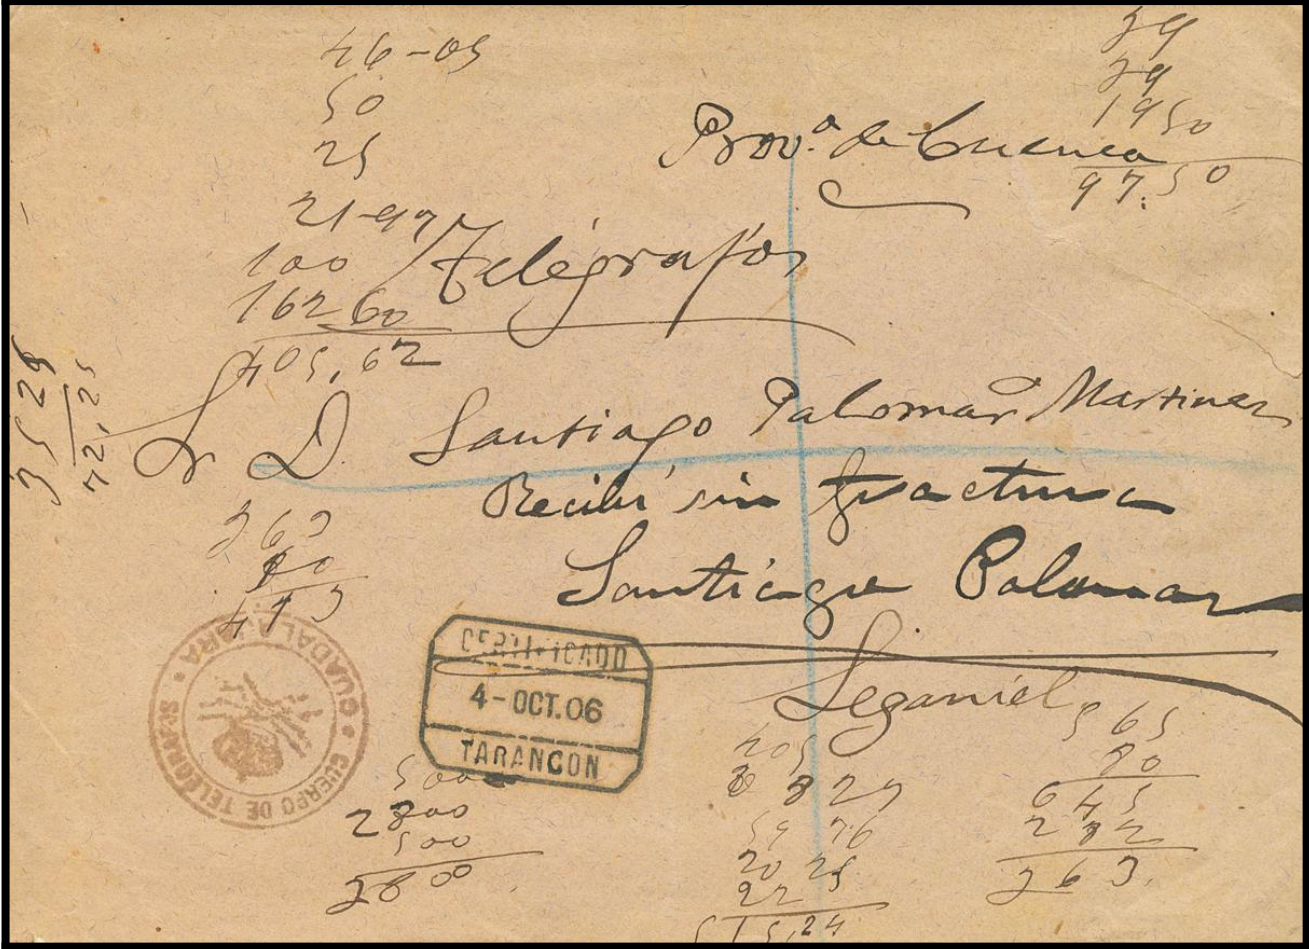 46-05
50
25
21-97
100
162 60
405,62
39
39
19 50
97.50
Prov.ª de Cuenca
Telégrafos
35 29
72,25
Sr D. Santiago Palomar Martinez
Recibí sin fractura
Santiago Palomar
Leganiel
363
413
GUADALAJARA
CUERPO DE TELEGRAFOS
CERTIFICADO
4-OCT.06
TARANCON
500
2800
500
3800
405
20 25
22 25
515,24
565
80
645
282
363.